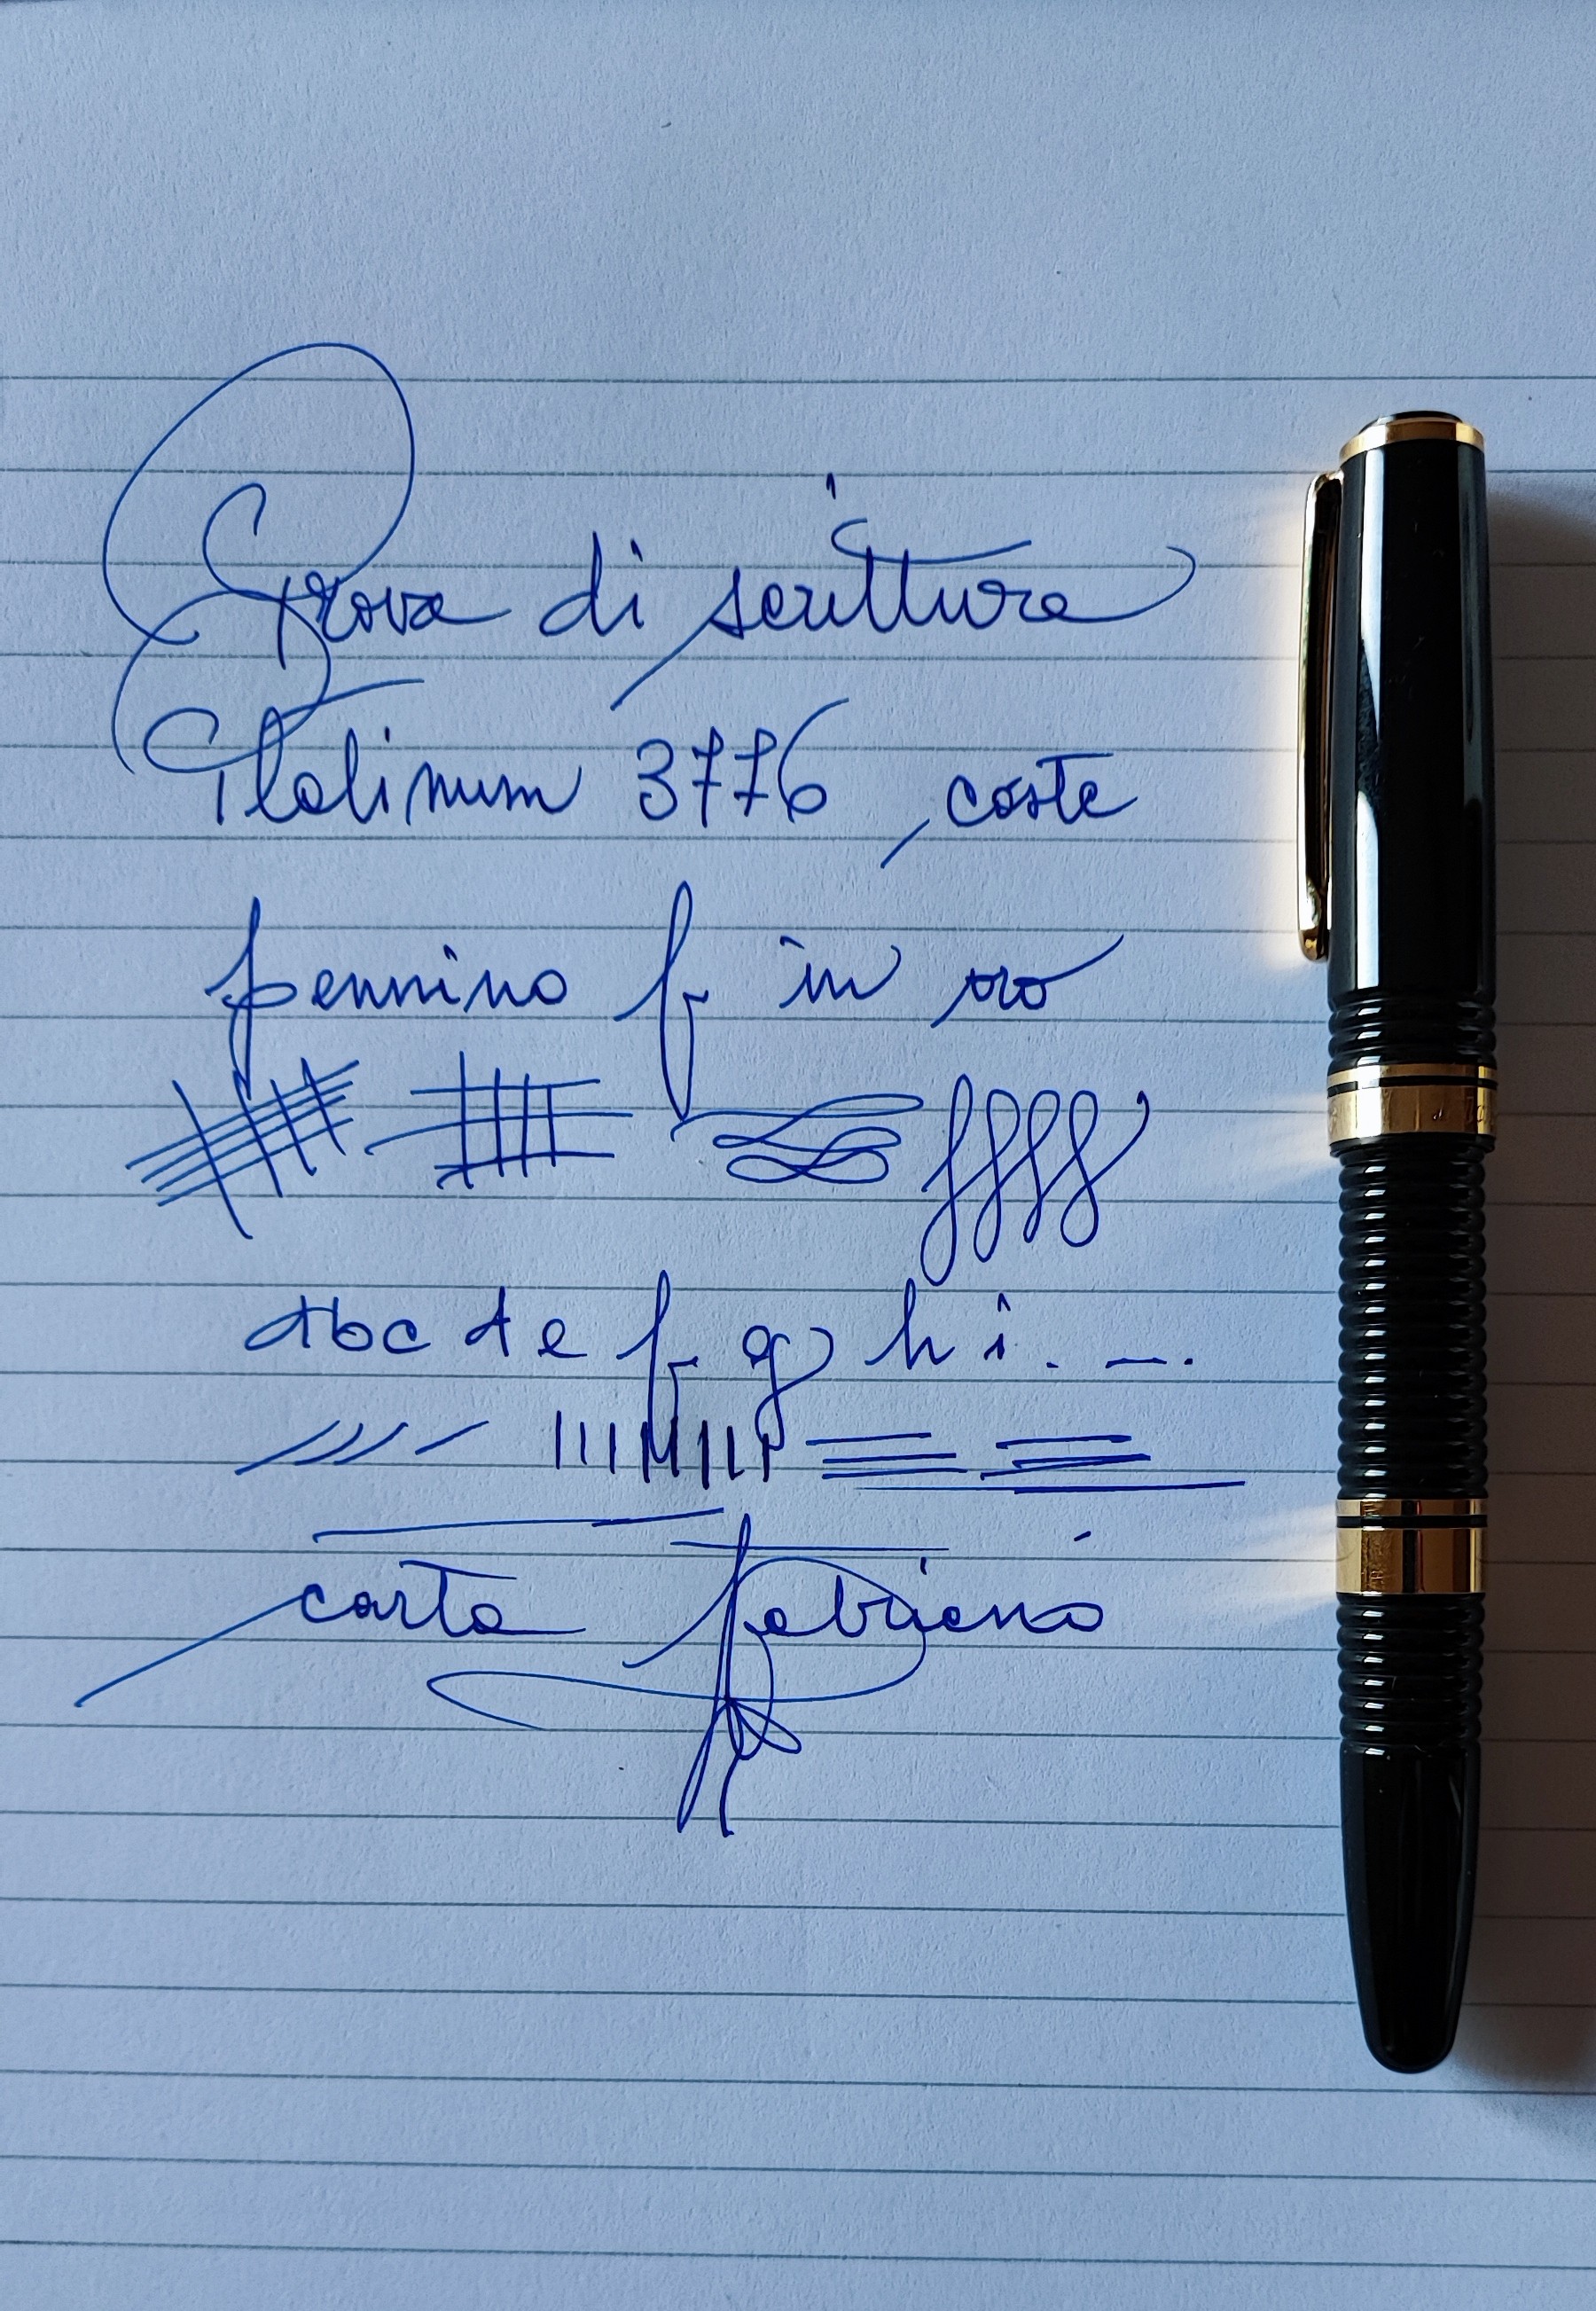 Prova di scrittura
Platinum 3776, coste
pennino f in oro
abc d e f g h i. _ .
carta fabriano